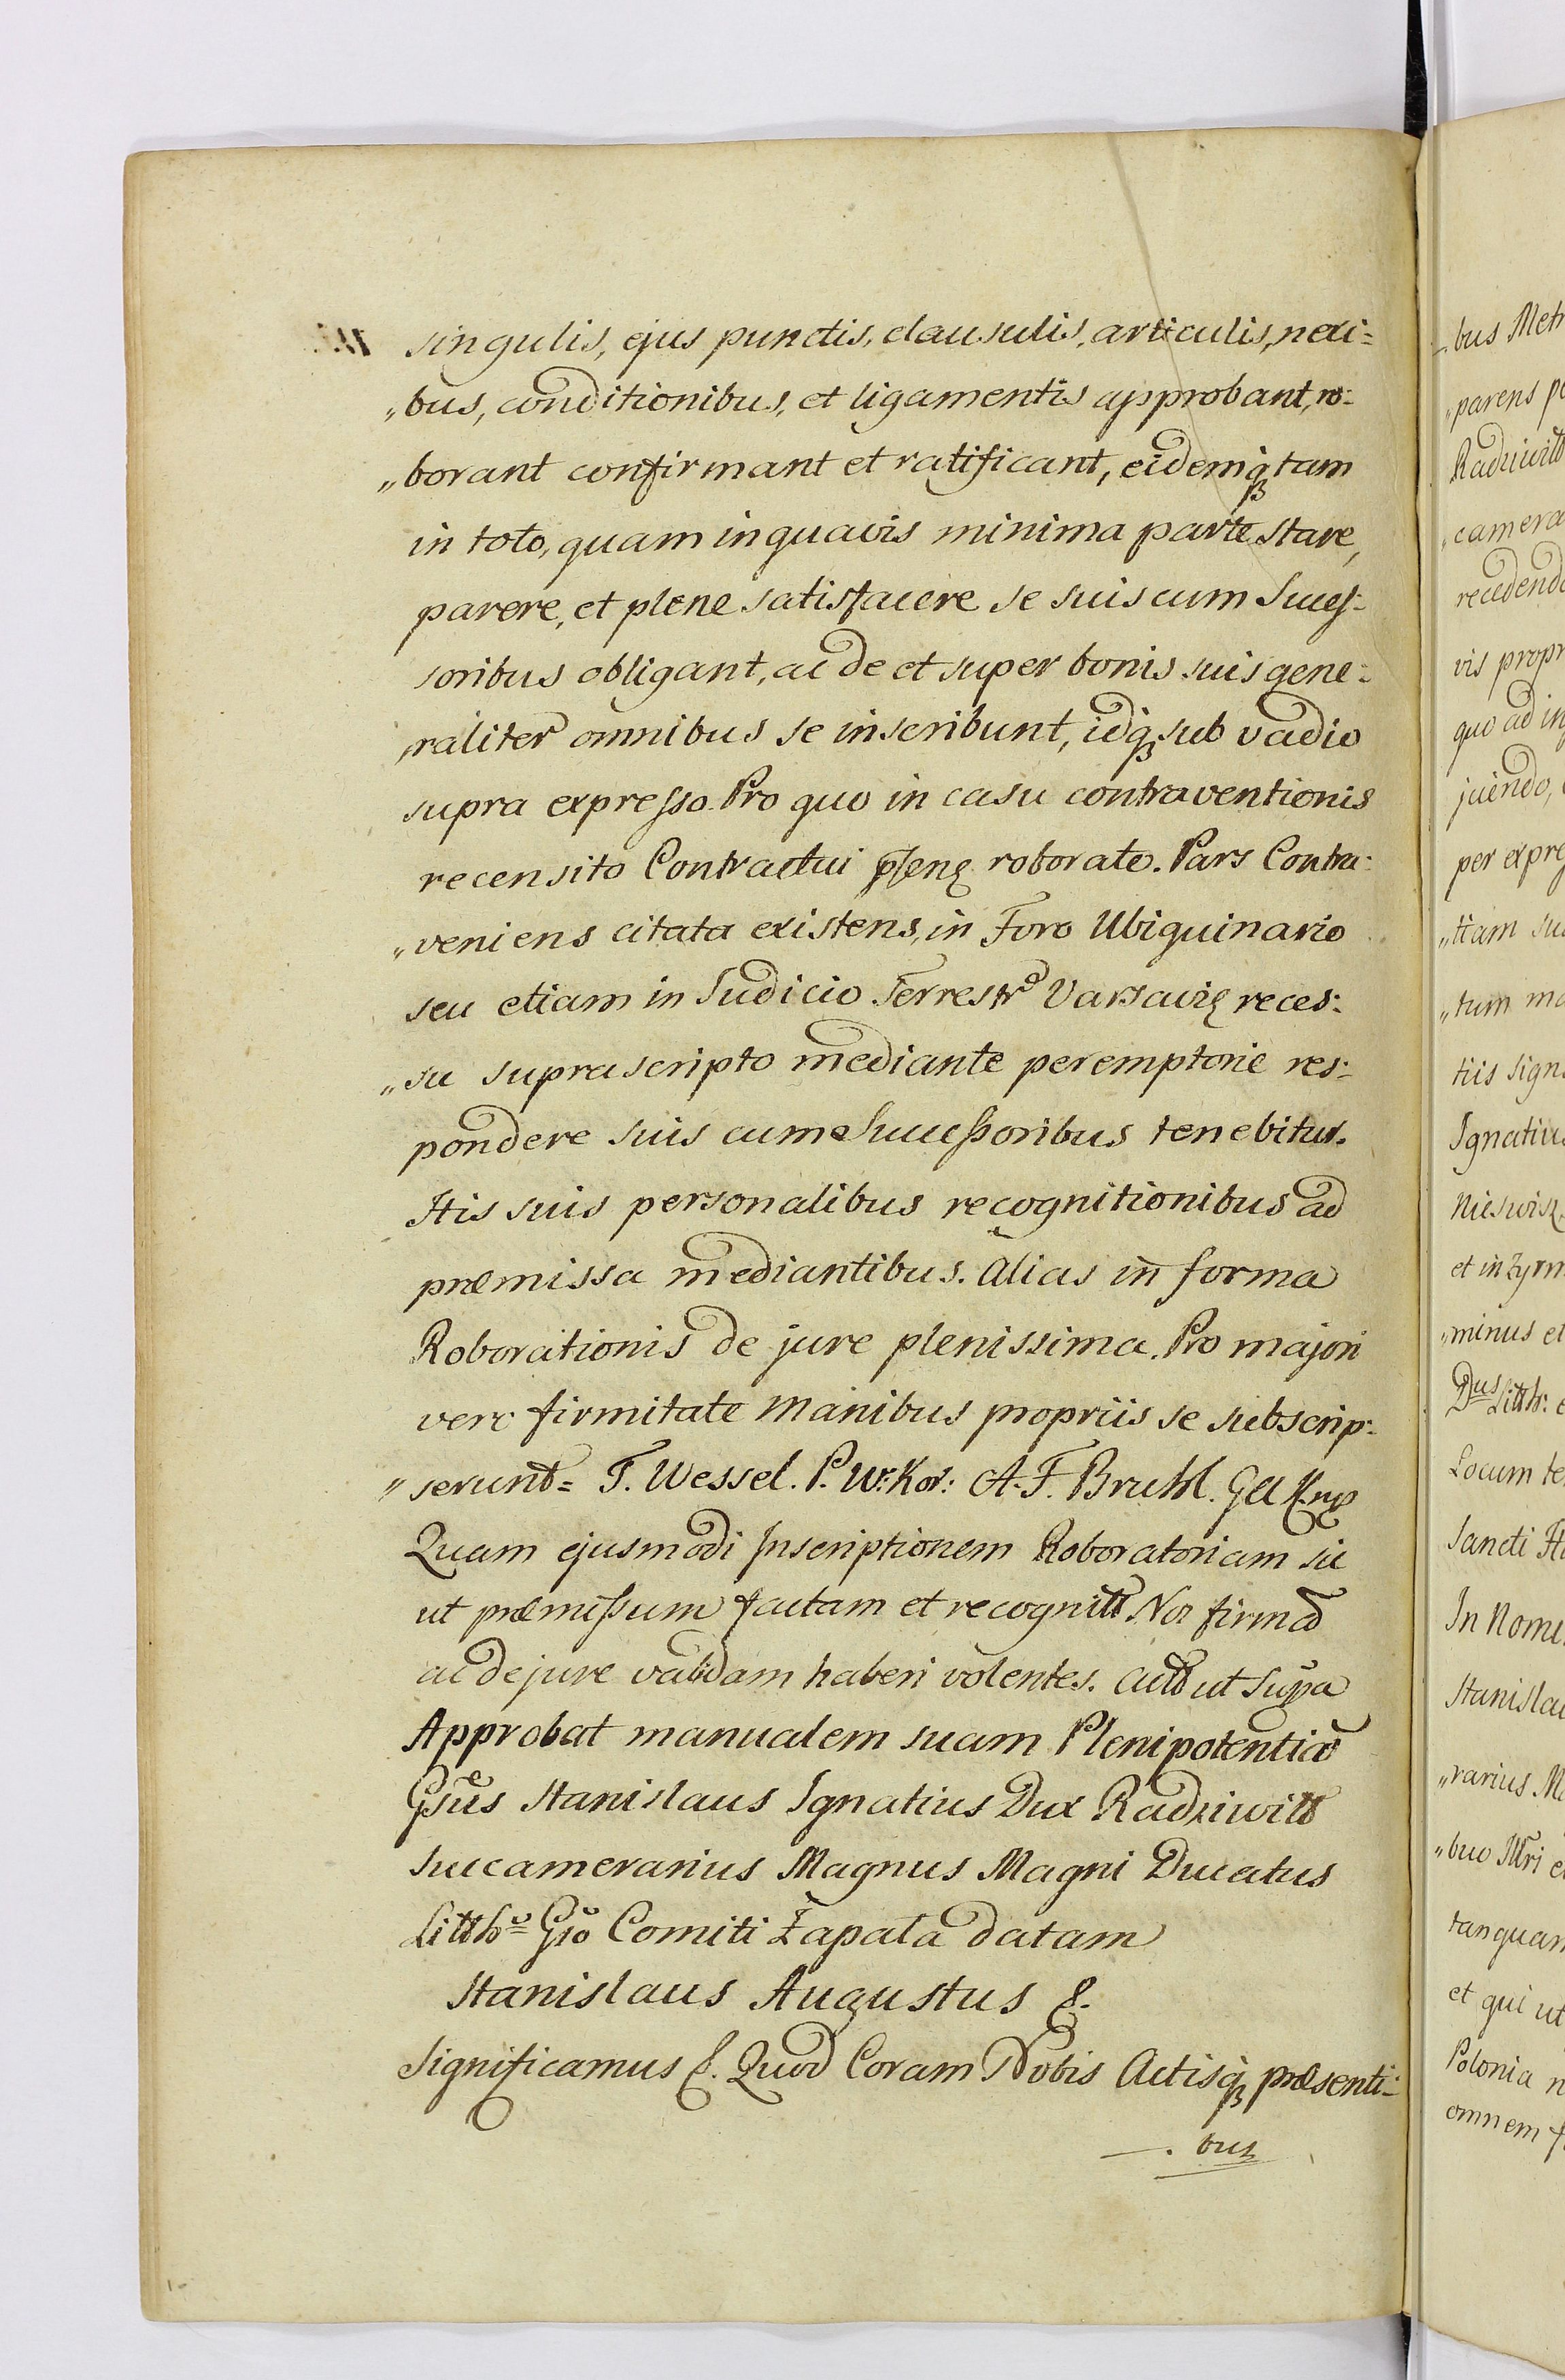 singulis, ejus punctis, clausulis, articulis, nexi=
„bus, conditionibus, et ligamentis approbant, ro=
„borant confirmant et ratificant, eidemq₃ tam
in toto, quam inquavis minima parte stare,
parere, et plene satisfacere se suis cum Succeſ=
soribus obligant, ac de et super bonis suis gene=
„raliter omnibus se inscribunt, idq₃ sub vadio
supra expreſso. Pro quo in casu contraventionis
recensito Contractui pſenę roborato. Pars Contra=
„veniens citata existens, in Foro Ubiquinario
seu etiam in Judicio Terrestrō Varsavię reces=
„su supra scripto mediante peremptorie res=
pondere suis cum Succeſsoribus tenebitur.
His suis personalibus recognitionibus ad
præmissa mediantibus. Alias in forma
Roborationis de jure plenissima. Pro majori
vero firmitate Manibus propriis se subscrip=
„serunt = T. Wessel. P. W: Kor: A. F. Bruhl.
Quam ejusmodi Inscriptionem Roboratoriam sic
ut præmiſsum factam et recognitã Nos firmã
ac de jure validam haberi volentes. Actũ ut Supa
Approbat manualem suam Plenipotentiã
Gsũs Stanislaus Ignatius Dux Radziwiłł
Succamerarius Magnus Magni Ducatus
Litthō= Gſo Comiti Zapata datam
Stanislaus Augustus &.
Significamus &. Quod Coram Nobis Actisq₃ præsenti=
—. bus
bus Metr
„parens pe
Radziwiłł
„camera
recedendo
vis propr
quo ad in
juendo,
per expre
„tiam su
„tum ma
tiis sign
Ignatius
Nieswisz
et in Zyrm
„minus et
Dus Litth: e
Locum te
Sancti H
In Nomi
Stanislau
„rarius Ma
„buo Mri e
tanquam
et qui ut
Polonia n
omnem f